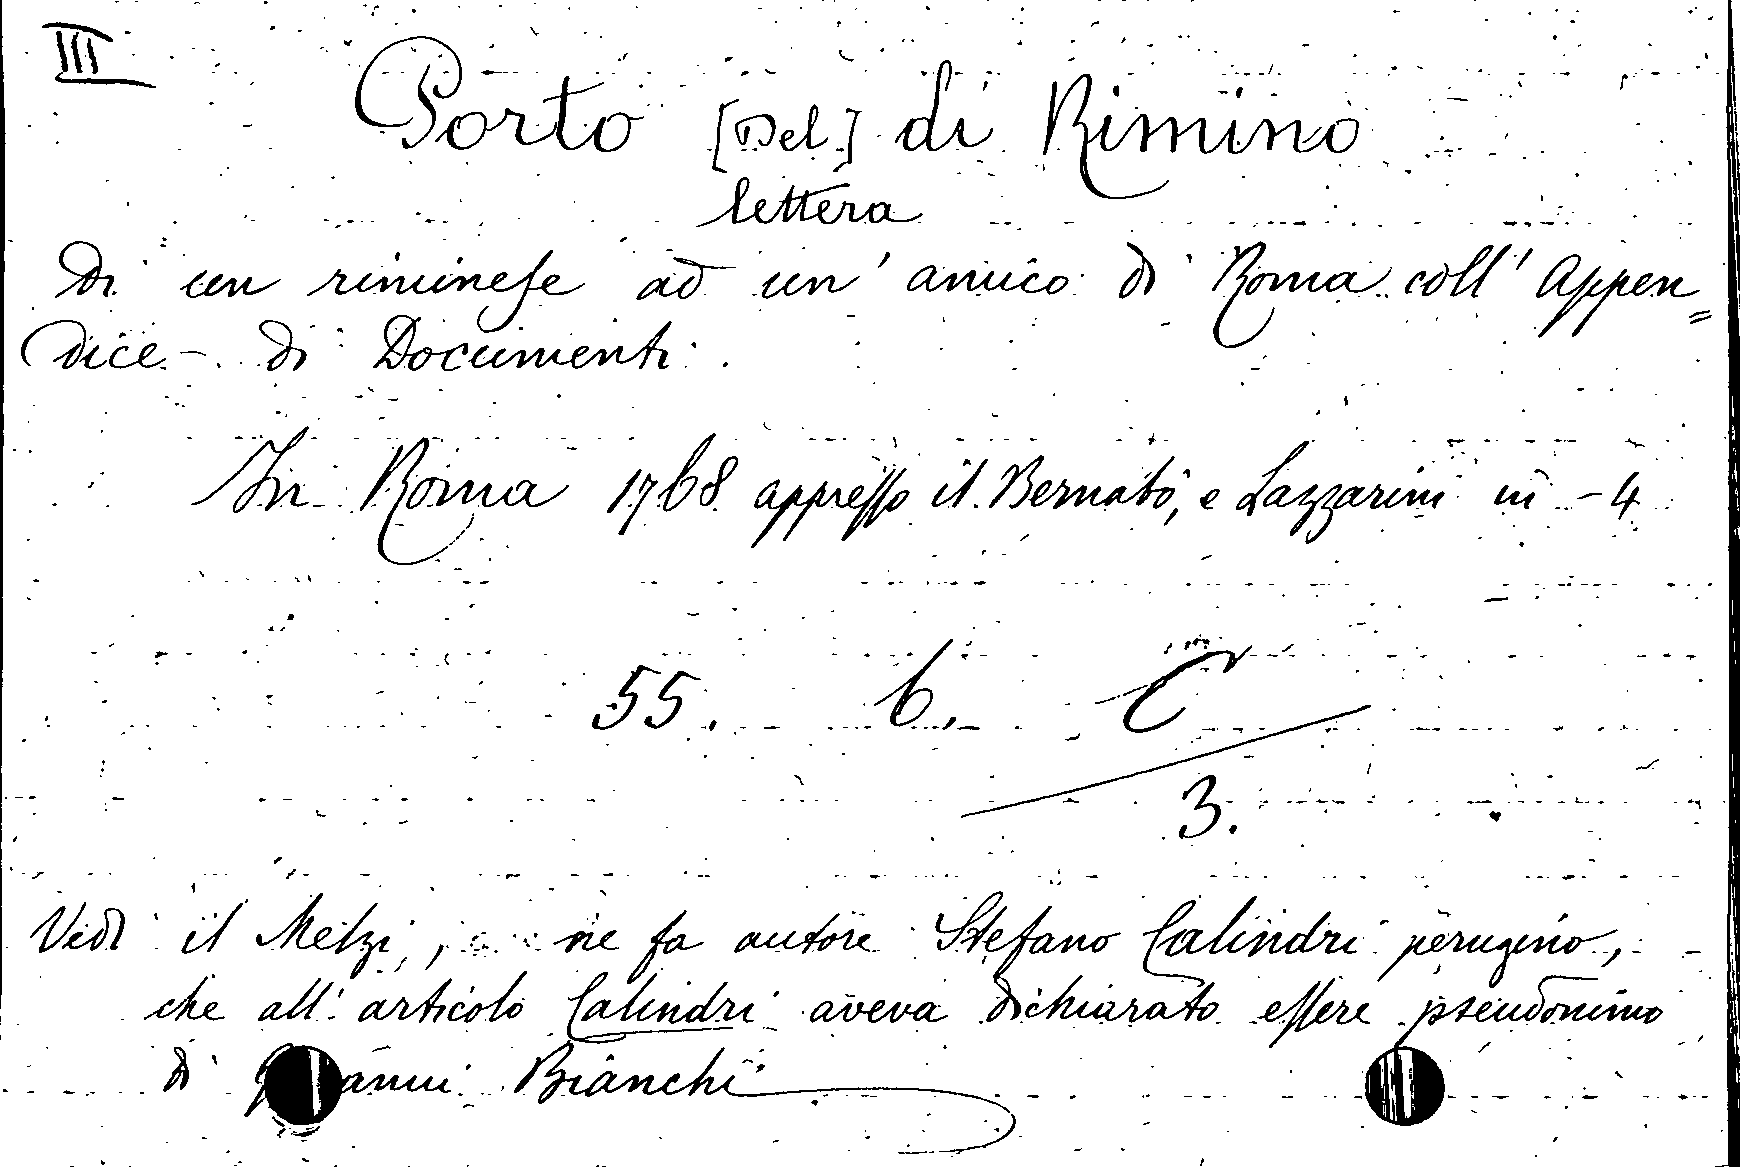 III
Porto [Del] di Rimino
lettera
di un riminese ad un' amico di Roma coll' Appen=
dice - di Documenti.
In Roma 1768 appresso il Bernabò, e Lazzarini in - 4
55. 6. C
3.
Vedi il Melzi, ne fa autore Stefano Calindri perugino,
che all' articolo Calindri aveva dichiarato essere pseudonimo
di Bianchi